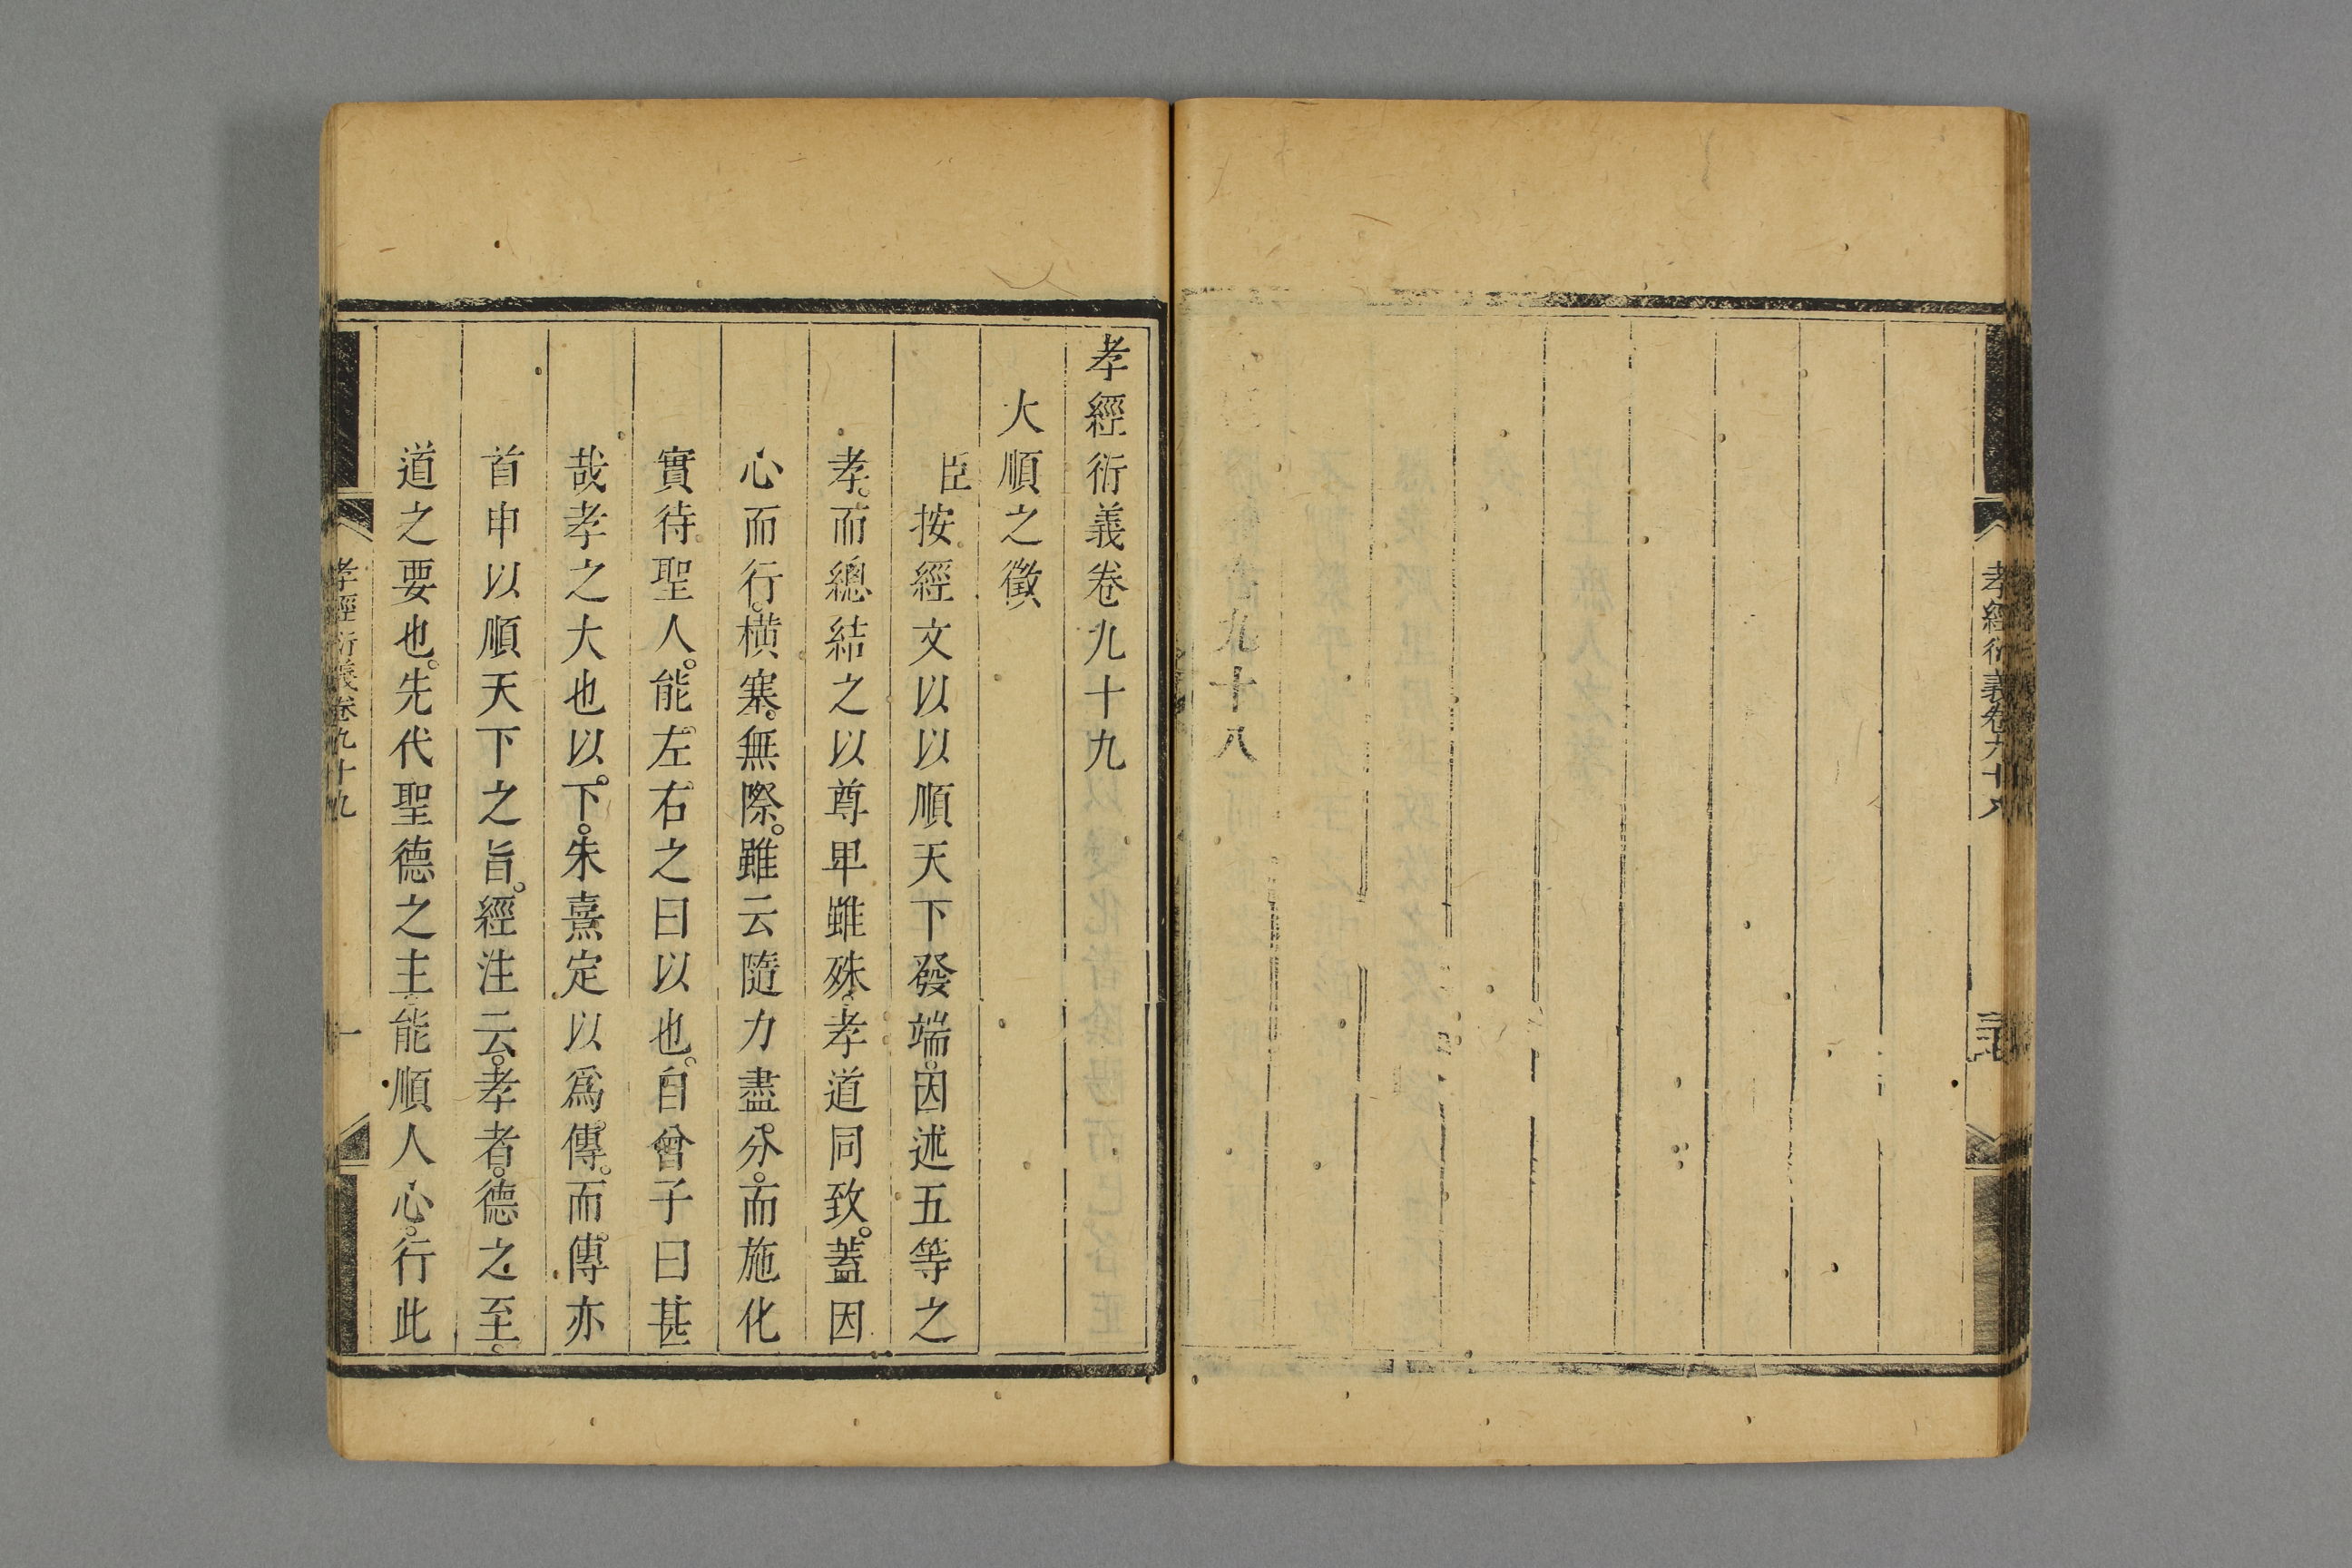 九十八
孝經衍義卷九十八
孝經衍義卷九十九
大順之徵
臣按經文以以順天下發端。因述五等之
孝。而總結之以尊卑雖殊。孝道同致。蓋因
心而行。橫塞。無際。雖云隨力盡。分。而施化
實待聖人。能。左。右之曰以也。自曾子曰甚
哉孝之大也以。下。朱熹定以爲傳。而傳亦
首申以順天下之旨。經注云。孝者。德之至。
道之要也。先代聖德之主。能順人心。行此
孝經衍義卷九十九
一